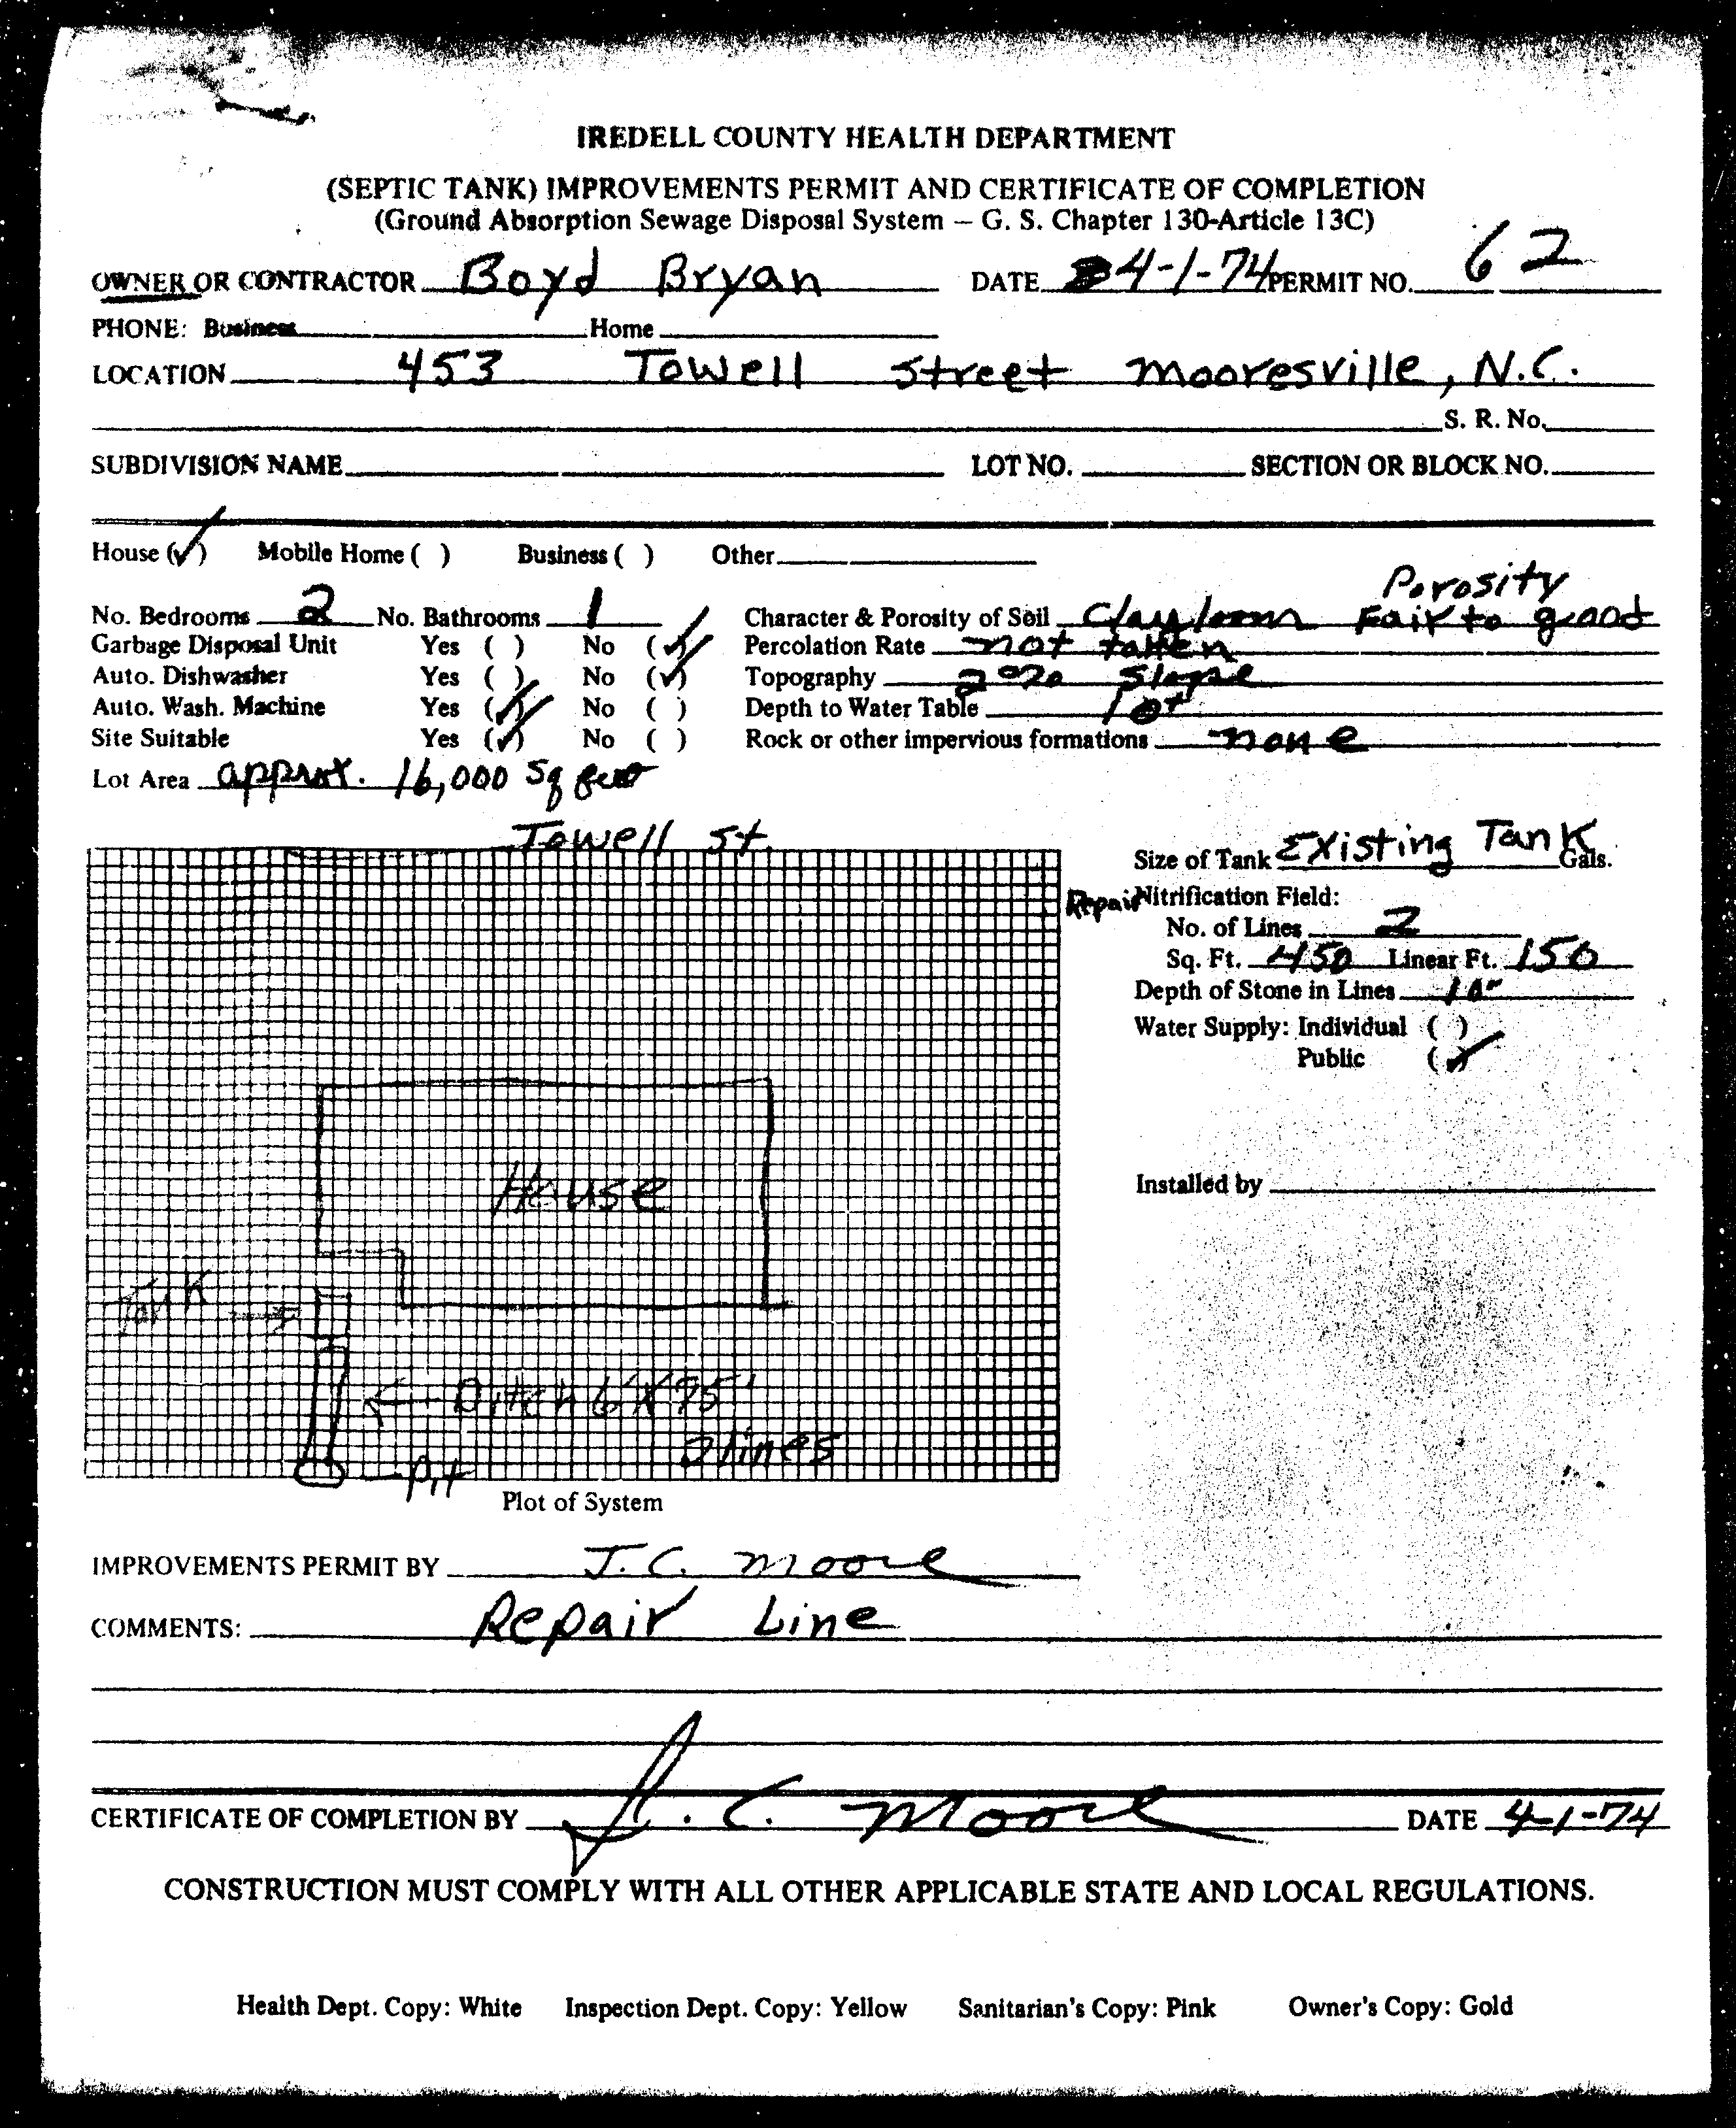 IREDELL COUNTY HEALTH DEPARTMENT
(SEPTIC TANK) IMPROVEMENTS PERMIT AND CERTIFICATE OF COMPLETION
(Ground Absorption Sewage Disposal System – G. S. Chapter 130-Article 13C)
OWNER OR CONTRACTOR Boyd Bryan DATE 4-1-74 PERMIT NO. 62
PHONE: Business Home
LOCATION 453 Towell Street Mooresville, N.C.
S. R. No.
SUBDIVISION NAME LOT NO. SECTION OR BLOCK NO.
House (✓) Mobile Home ( ) Business ( ) Other
Porosity
No. Bedrooms 2 No. Bathrooms 1 Character & Porosity of Soil Clay loam Fair to good
Garbage Disposal Unit Yes ( ) No (✓) Percolation Rate not taken
Auto. Dishwasher Yes ( ) No (✓) Topography 2% Slope
Auto. Wash. Machine Yes (✓) No ( ) Depth to Water Table
Site Suitable Yes (✓) No ( ) Rock or other impervious formations none
Lot Area approx. 16,000 Sq feet
Towell St.
Size of Tank Existing Tank Gals.
Repair Nitrification Field:
No. of Lines 2
Sq. Ft. 450 Linear Ft. 150
Depth of Stone in Lines 10"
Water Supply: Individual ( )
Public (✓)
House
Installed by
Tank
Ditch 6' X 75'
2 lines
Pit
Plot of System
IMPROVEMENTS PERMIT BY J. C. Moore
COMMENTS: Repair Line
CERTIFICATE OF COMPLETION BY J. C. Moore DATE 4-1-74
CONSTRUCTION MUST COMPLY WITH ALL OTHER APPLICABLE STATE AND LOCAL REGULATIONS.
Health Dept. Copy: White Inspection Dept. Copy: Yellow Sanitarian's Copy: Pink Owner's Copy: Gold